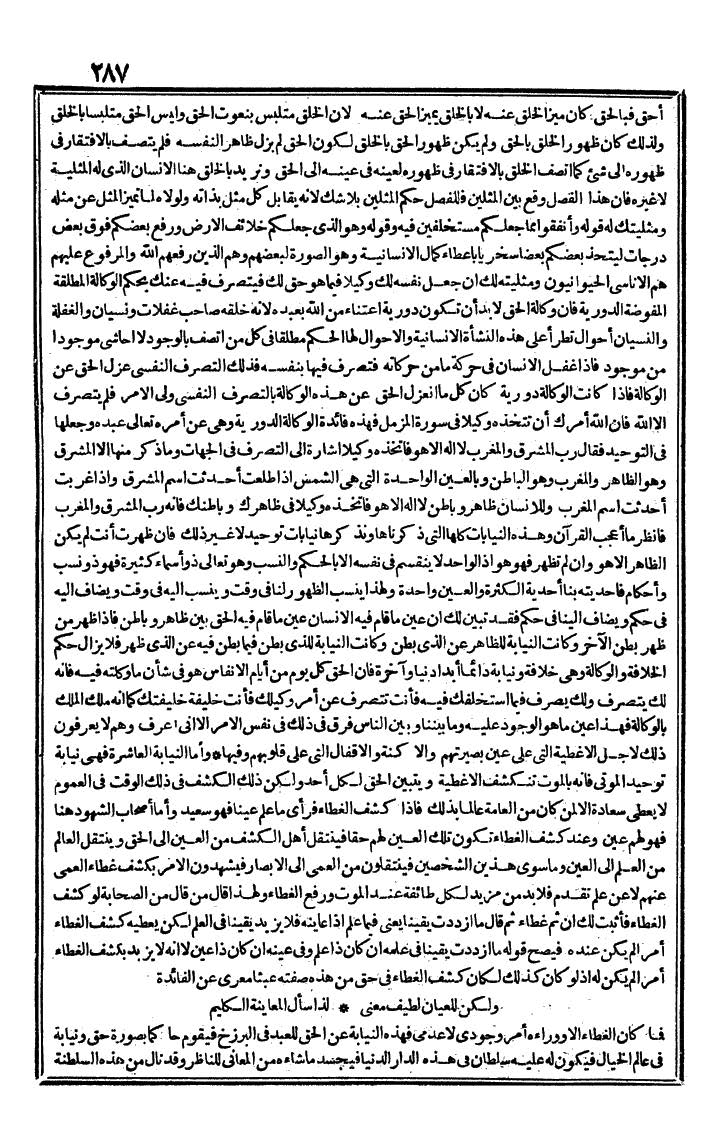 ٢٨٧
أحق فبالحق كان ميز الخلق عنه لا بالخلق يميز الحق عنه لان الخلق متلبس بنعوت الحق وليس الحق متلبسا بالخلق
ولذلك كان ظهور الخلق بالحق ولم يكن ظهور الحق بالخلق لكون الحق لم يزل ظاهر النفسه فلم يتصف بالافتقار فى
ظهوره الى شئ كما اتصف الخلق بالافتقار فى ظهوره لعينه فى عينه الى الحق ونريد بالخلق هنا الانسان الذى له المثلية
لا غيره فان هذا الفصل وقع بين المثلين فللفصل حكم المثلين بلا شك لانه يقابل كل مثل بذاته ولولاه لما تميز المثل عن مثله
ومثليتك له قوله وأنفقوا مما جعلكم مستخلفين فيه وقوله وهو الذى جعلكم خلائف الارض ورفع بعضكم فوق بعض
درجات ليتخذ بعضكم بعضا سخريا باعطاء كمال الانسانية وهو الصورة لبعضهم وهم الذين رفعهم الله والمرفوع عليهم
هم الاناسى الحيوانيون ومثليته لك ان جعل نفسه لك وكيلا فيما هو حق لك فيتصرف فيه عنك بحكم الوكالة المطلقة
المفوضة الدورية فان وكالة الحق لا بد أن تكون دورية اعتناء من الله بعبده لانه خلقه صاحب غفلات ونسيان والغفلة
والنسيان أحوال تطرأ على هذه النشأة الانسانية والاحوال لها الحكم مطلقا فى كل من اتصف بالوجود لا احاشى موجودا
من موجود فاذا غفل الانسان فى حركة ما من حركاته فتصرف فيها بنفسه فذلك التصرف النفسى عزل الحق عن
الوكالة فاذا كانت الوكالة دورية كان كل ما انعزل الحق عن هذه الوكالة بالتصرف النفسى ولى الامر فلم يتصرف
الا الله فان الله أمرك أن تتخذه وكيلا فى سورة المزمل فهذه فائدة الوكالة الدورية وهى عن أمره تعالى عبده وجعلها
فى التوحيد فقال رب المشرق والمغرب لا اله الا هو فاتخذه وكيلا اشارة الى التصرف فى الجهات وما ذكر منها الا المشرق
وهو الظاهر والمغرب وهو الباطن وبالعين الواحدة التى هى الشمس اذا طلعت أحدثت اسم المشرق واذا غربت
أحدثت اسم المغرب وللانسان ظاهر وباطن لا اله الا هو فاتخذه وكيلا فى ظاهرك وباطنك فانه رب المشرق والمغرب
فانظر ما أعجب القرآن وهذه النيابات كلها التى ذكرناها ونذكرها نيابات توحيد لا غير ذلك فان ظهرت أنت لم يكن
الظاهر الا هو وان لم تظهر فهو هو اذ الواحد لا ينقسم فى نفسه الا بالحكم والنسب وهو تعالى ذو أسماء كثيرة فهو ذو نسب
وأحكام فاحديته بنا أحدية الكثرة والعين واحدة ولهذا ينسب الظهور لنا فى وقت وينسب اليه فى وقت ويضاف اليه
فى حكم ويضاف الينا فى حكم فقد تبين لك ان عين ما قام فيه الانسان عين ما قام فيه الحق بين ظاهر وباطن فاذا ظهر من
ظهر بطن الآخر وكانت النيابة للظاهر عن الذى بطن وكانت النيابة للذى بطن فيما بطن فيه عن الذى ظهر فلا يزال حكم
الخلافة والوكالة وهى خلافة ونيابة دائما أبدا دنيا وآخرة فان الحق كل يوم من أيام الانفاس هو فى شأن ما وكلته فيه فانه
لك يتصرف ولك يصرف فيما استخلفك فيه فأنت تتصرف عن أمر وكيلك فأنت خليفة خليفتك كما انه ملك الملك
بالوكالة فهذا عين ما هو الوجود عليه وما بيننا وبين الناس فرق فى ذلك فى نفس الامر الا انى اعرف وهم لا يعرفون
ذلك لاجل الاغطية التى على عين بصيرتهم والا كنة والاقفال التى على قلوبهم وفيها * وأما النيابة العاشرة فهى نيابة
توحيد الموتى فانه بالموت تنكشف الاغطية ويتبين الحق لكل أحد ولكن ذلك الكشف فى ذلك الوقت فى العموم
لا يعطى سعادة الا لمن كان من العامة عالما بذلك فاذا كشف الغطاء فرأى ما علم عينا فهو سعيد وأما أصحاب الشهود هنا
فهو لهم عين وعند كشف الغطاء تكون تلك العين لهم حقا فينتقل أهل الكشف من العين الى الحق وينتقل العالم
من العلم الى العين وما سوى هذين الشخصين فينتقلون من العمى الى الابصار فيشهدون الامر بكشف غطاء العمى
عنهم لا عن علم تقدم فلا بد من مزيد لكل طائفة عند الموت ورفع الغطاء ولهذا قال من قال من الصحابة لو كشف
الغطاء فأثبت لك ان ثم غطاء ثم قال ما ازددت يقينا يعنى فيما علم اذا عاينه فلا يزيد يقينا فى العلم لكن يعطيه كشف الغطاء
أمرا لم يكن عنده فيصح قوله ما ازددت يقينا فى علمه ان كان ذا علم وفى عينه ان كان ذا عين لا انه لا يزيد بكشف الغطاء
أمرا لم يكن له اذ لو كان كذلك لكان كشف الغطاء فى حق من هذه صفته عبثا معرى عن الفائدة
ولكن للعيان لطيف معنى * لذا سأل المعاينة الكليم
فما كان الغطاء الا ووراءه أمر وجودى لا عدمى فهذه النيابة عن الحق للعبد فى البرزخ فيقوم حا كما بصورة حق ونيابة
فى عالم الخيال فيكون له عليه سلطان فى هذه الدار الدنيا فيجسد ما شاءه من المعانى للناظر وقد نال من هذه السلطنة